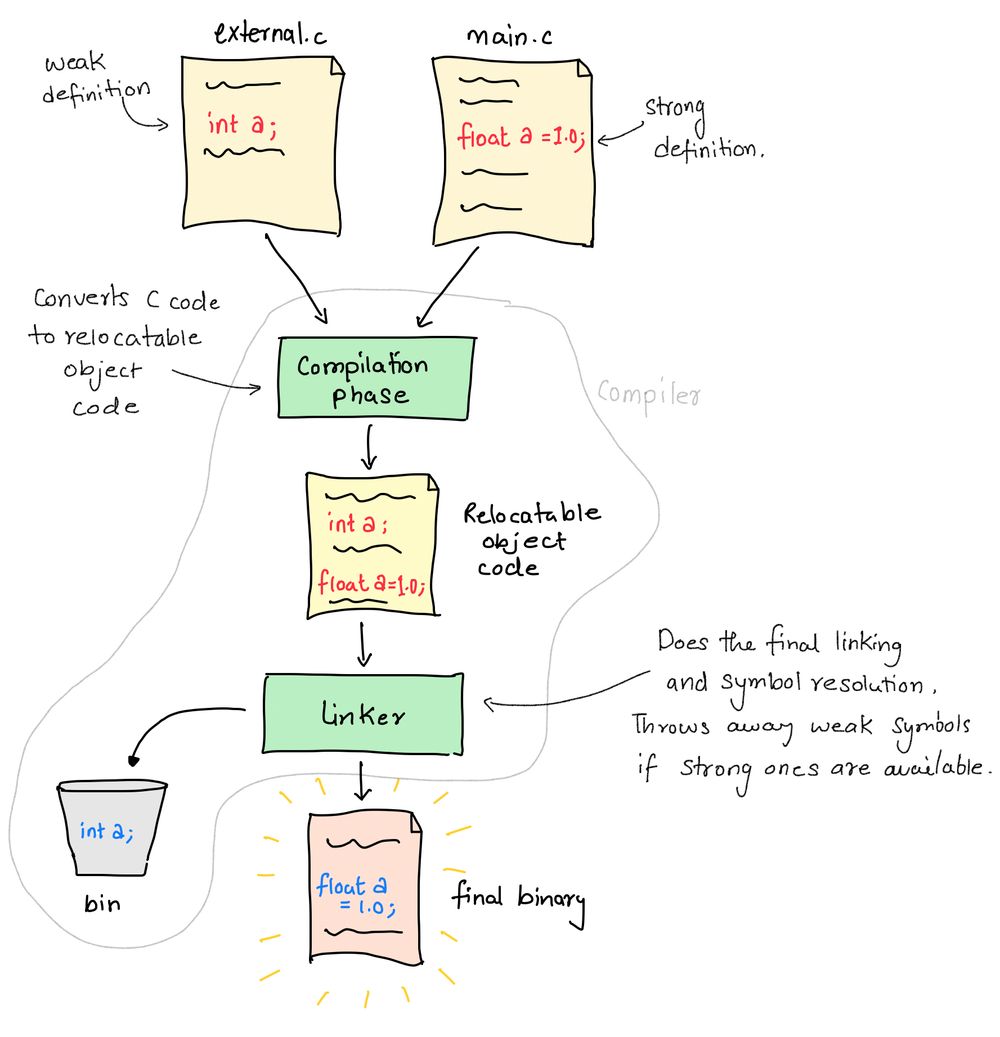 external.c
main.c
weak
definition
int a;
float a =1.0;
strong
definition.
Converts C code
to relocatable
object
code
Compilation
phase
Compiler
int a;
float a=1.0;
Relocatable
object
code
Linker
Does the final linking
and symbol resolution.
Throws away weak symbols
if strong ones are available.
int a;
bin
float a
= 1.0;
final binary